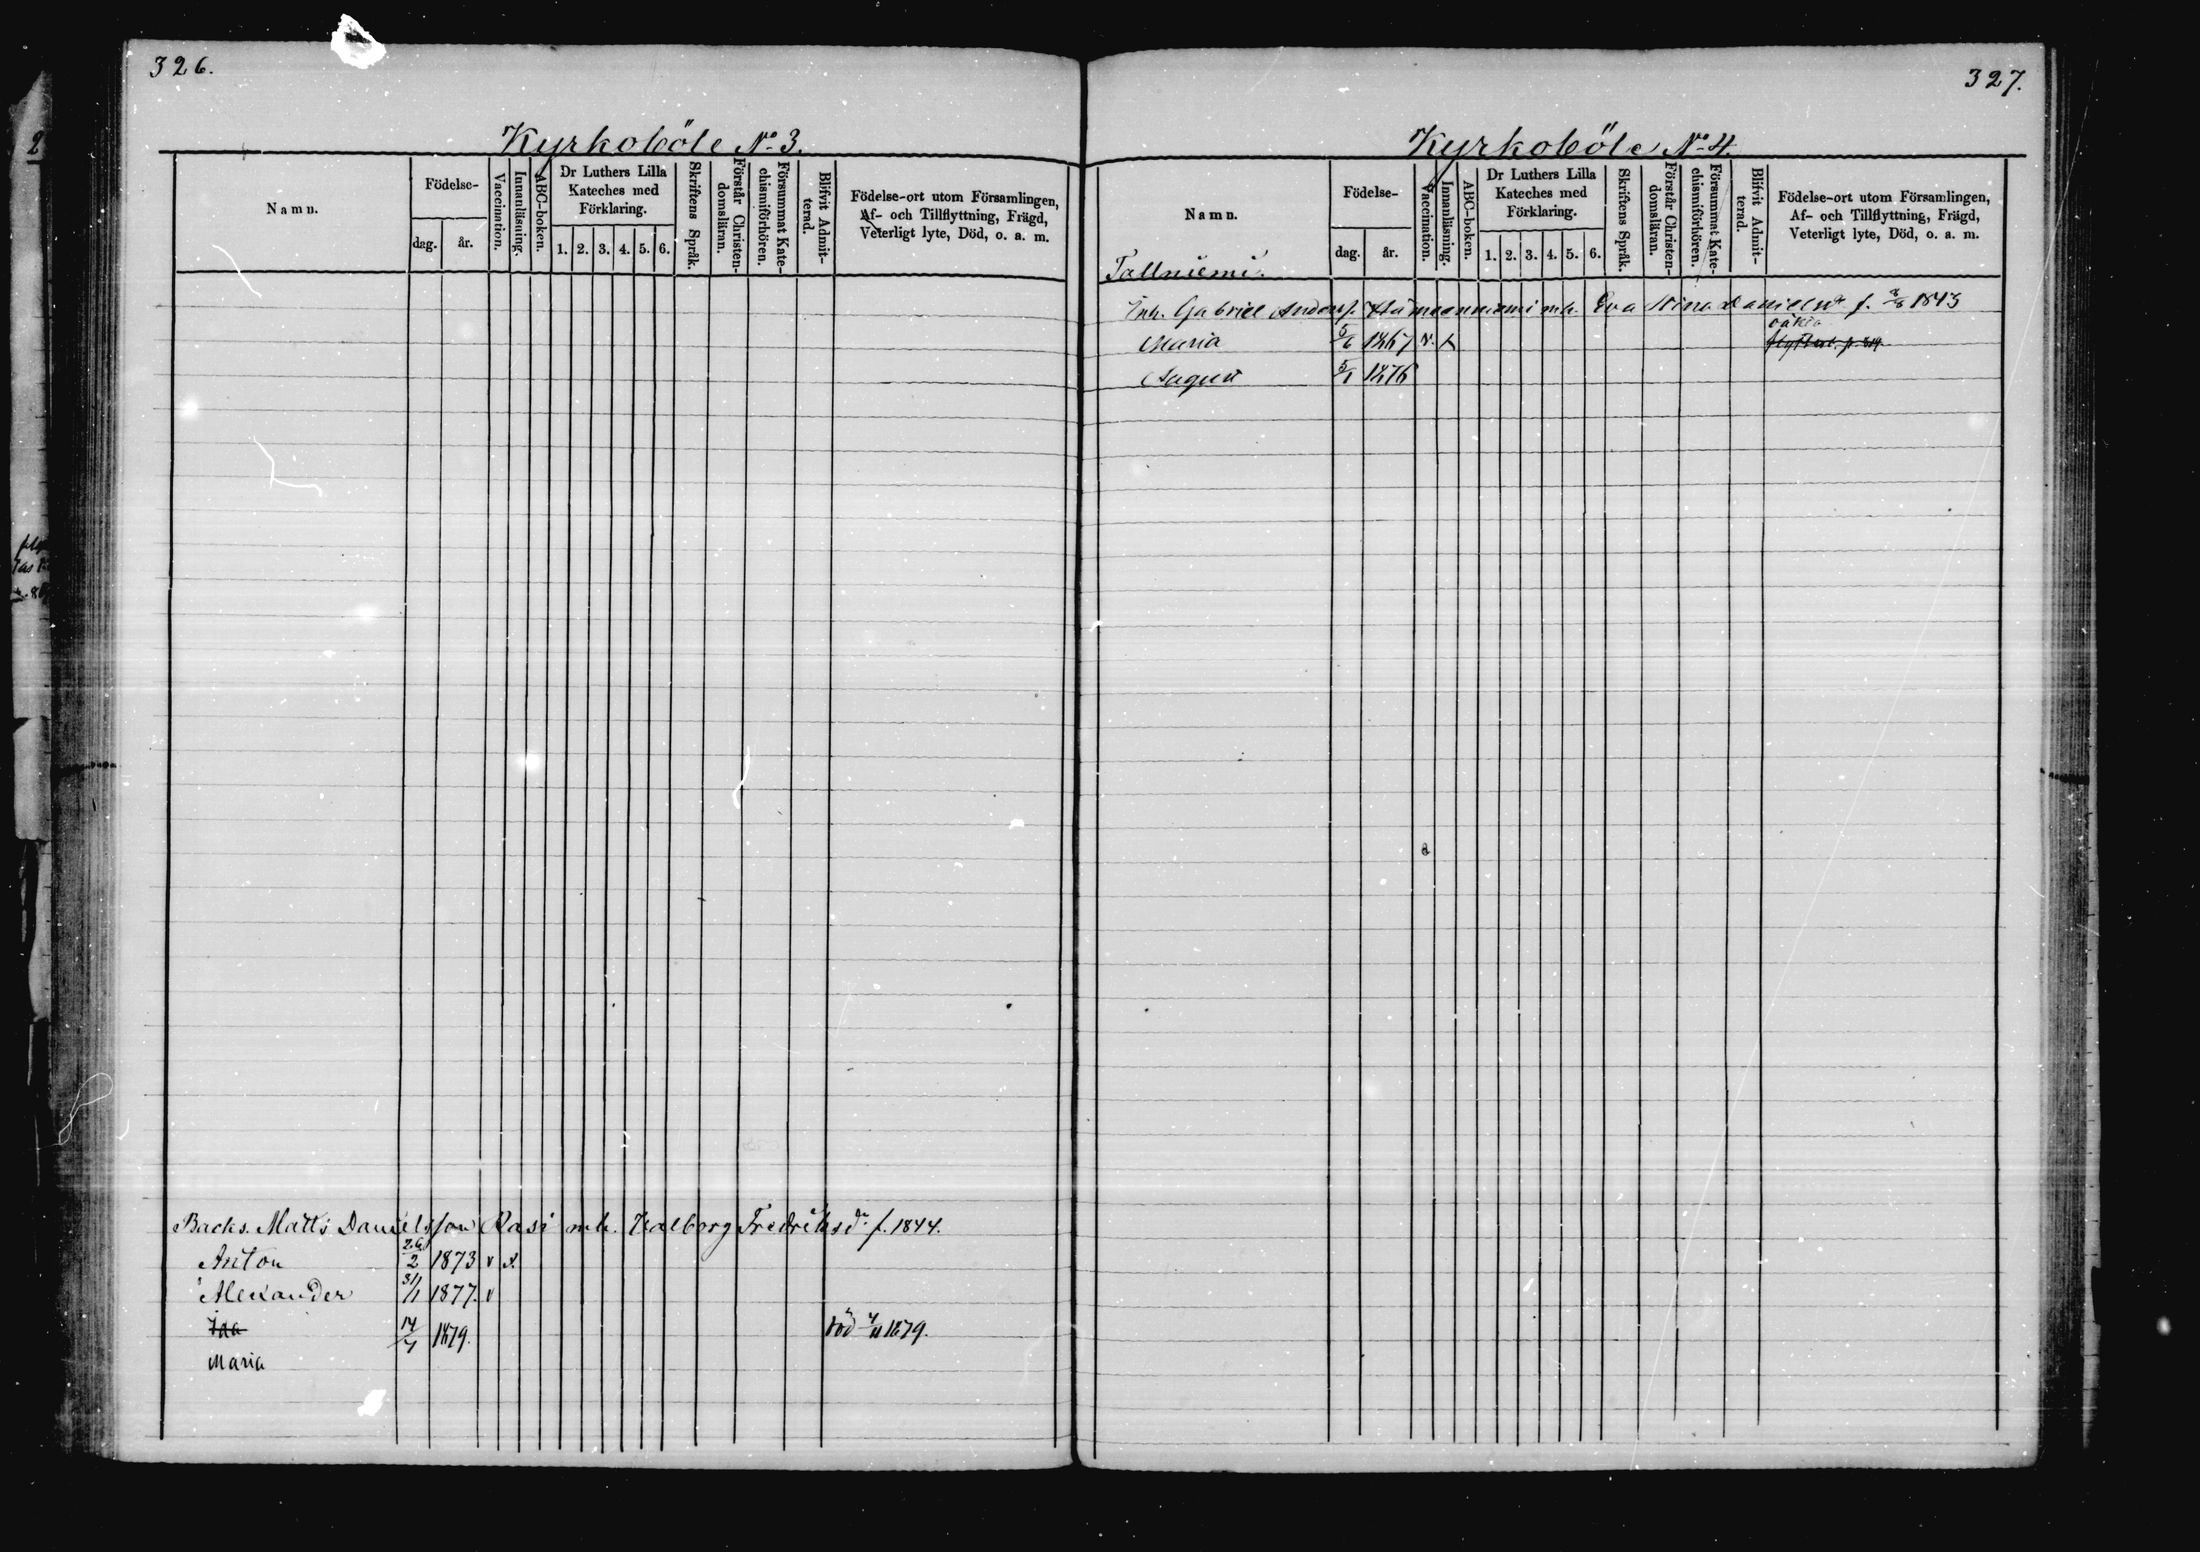 326.
Kyrkoböle No 3.
Namn.
Födelse-
dag. år.
Vaccination.
Innanläsning.
ABC-boken.
Dr Luthers Lilla
Kateches med
Förklaring.
1. 2. 3. 4. 5. 6.
Skriftens Språk.
Förstår Christen-
domsläran.
Försummat Kate-
chismiförhören.
Blifvit Admit-
terad.
Födelse-ort utom Församlingen,
Af- och Tillflyttning, Frägd,
Veterligt lyte, Död, o. a. m.
Backs. Matts Danielsson Rasi mh. Valborg Fredriksdr f. 1844.
Anton 26/2 1873 v x.
Alexander 31/1 1877. v
Ida 14/4 1879. död 4/11 1879.
Maria
327.
Kyrkoböle No 4.
Namn.
Födelse-
dag. år.
Vaccination.
Innanläsning.
ABC-boken.
Dr Luthers Lilla
Kateches med
Förklaring.
1. 2. 3. 4. 5. 6.
Skriftens Språk.
Förstår Christen-
domsläran.
Försummat Kate-
chismiförhören.
Blifvit Admit-
terad.
Födelse-ort utom Församlingen,
Af- och Tillflyttning, Frägd,
Veterligt lyte, Död, o. a. m.
Tallniemi.
Inh. Gabriel Anderss. mh. Eva Stina Danielsdr f. 1843
Maria 5/6 1867 v. x
August 5/1 1876